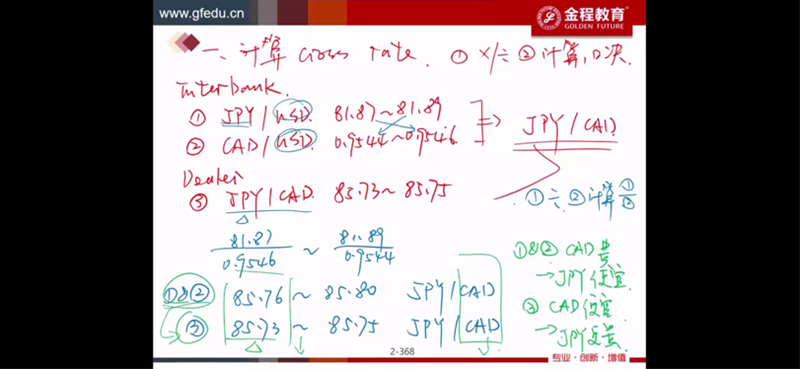 www.gfedu.cn
金程教育
GOLDEN FUTURE
一、计算 cross rate. ① ×/÷ ② 计算, 口决.
Interbank.
① JPY / USD. 81.87 ~ 81.89
② CAD / USD. 0.9544 ~ 0.9546
⇒ JPY / CAD
Dealer
③ JPY / CAD. 85.73 ~ 85.75
①÷②计算 ①/②
81.87/0.9546 ~ 81.89/0.9544
①&② 85.76 ~ 85.80 JPY / CAD
③ 85.73 ~ 85.75 JPY / CAD
①&② CAD 贵
→ JPY 便宜
③ CAD 便宜
→ JPY 贵
2-368
专业·创新·增值